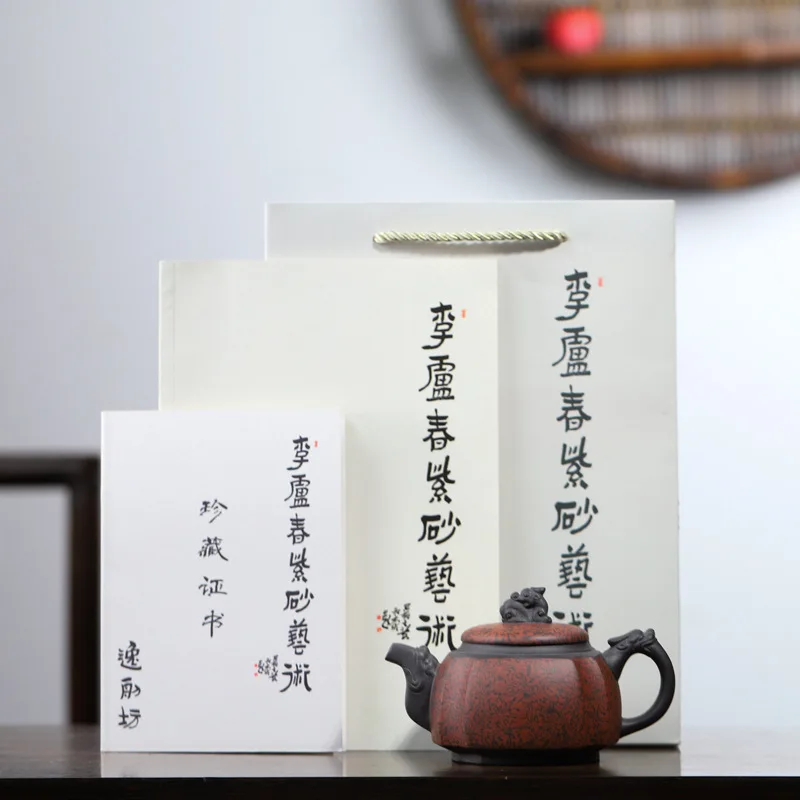 李廬春紫砂藝術
李廬春紫砂藝術
李廬春紫砂藝術
珍藏证书
逸陶坊